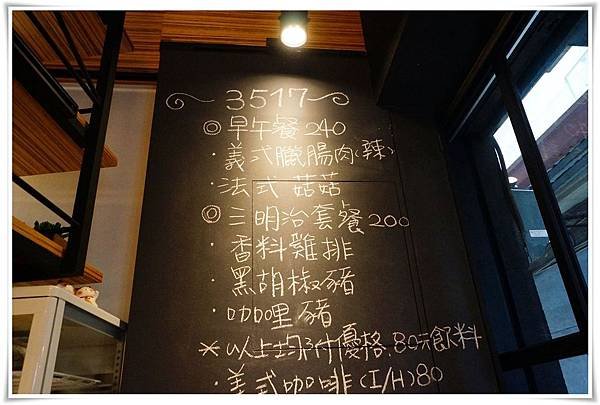 3517
◎早午餐 240
·義式臘腸肉(辣)
·法式 菇菇
◎三明治套餐 200
·香料雞排
·黑胡椒豬
·咖哩 豬
*以上均附優格.80元飲料
·美式咖啡(I/H)80